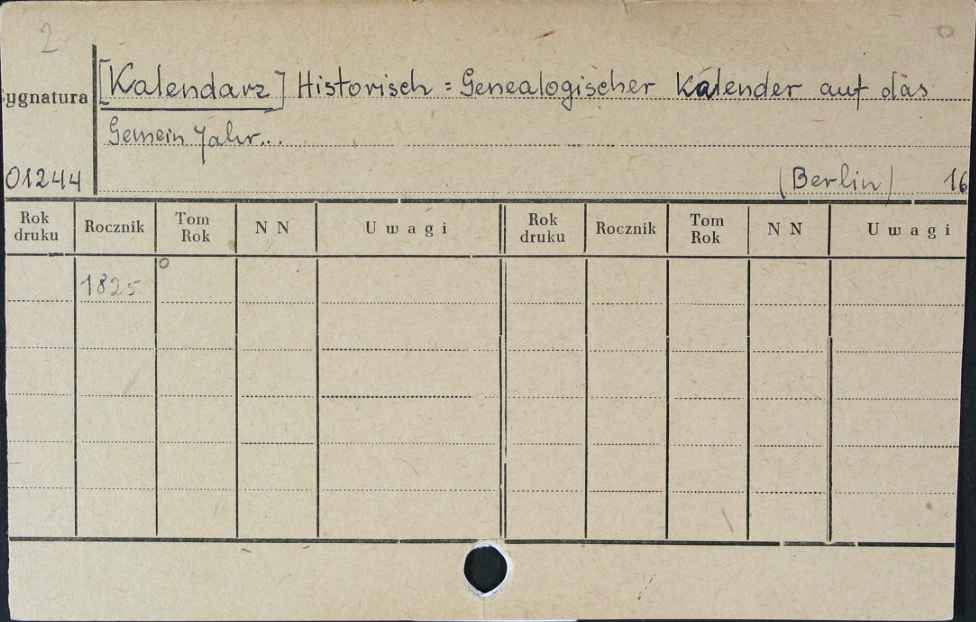 2
ygnatura [Kalendarz] Historisch = Genealogischer Kalender auf das
Gemein Jahr...
01244 (Berlin) 16
Rok druku Rocznik Tom Rok N N Uwagi Rok druku Rocznik Tom Rok N N Uwagi
1825